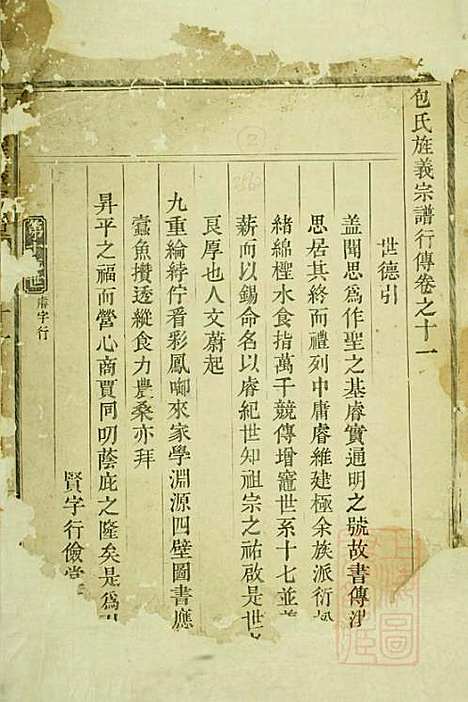 包氏旌義宗譜行傳卷之十一
世德引
蓋聞思為作聖之基睿實通明之號故書傳洪
思居其終而禮列中庸睿維建極余族派衍
緒綿樫水食指萬千競傳增竈世系十七並
薪而以錫命名以睿紀世知祖宗之祐啟是世
長厚也人文蔚起
九重綸綍佇看彩鳳啣來家學淵源四壁圖書應
蠹魚攢透縱食力農桑亦拜
昇平之福而營心商賈同叨蔭庇之隆矣是為引
賢字行儉
睿字行